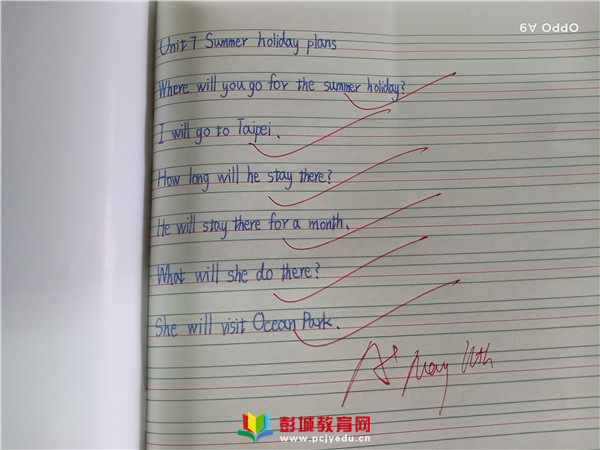 Unit 7 Summer holiday plans
Where will you go for the summer holiday?
I will go to Taipei.
How long will he stay there?
He will stay there for a month.
What will she do there?
She will visit Ocean Park.
A+ May 11th
彭城教育网
www.pcjyedu.cn
OPPO A9